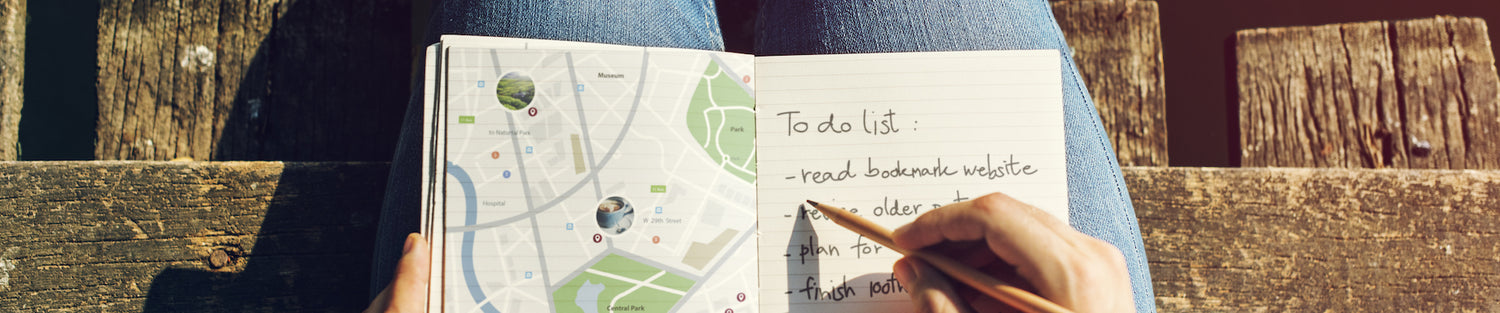 Museum
Park
In Natural Park
Hospital
W 29th. Street
Central Park
To do list :
- read bookmark website
- older
- plan for
- finish